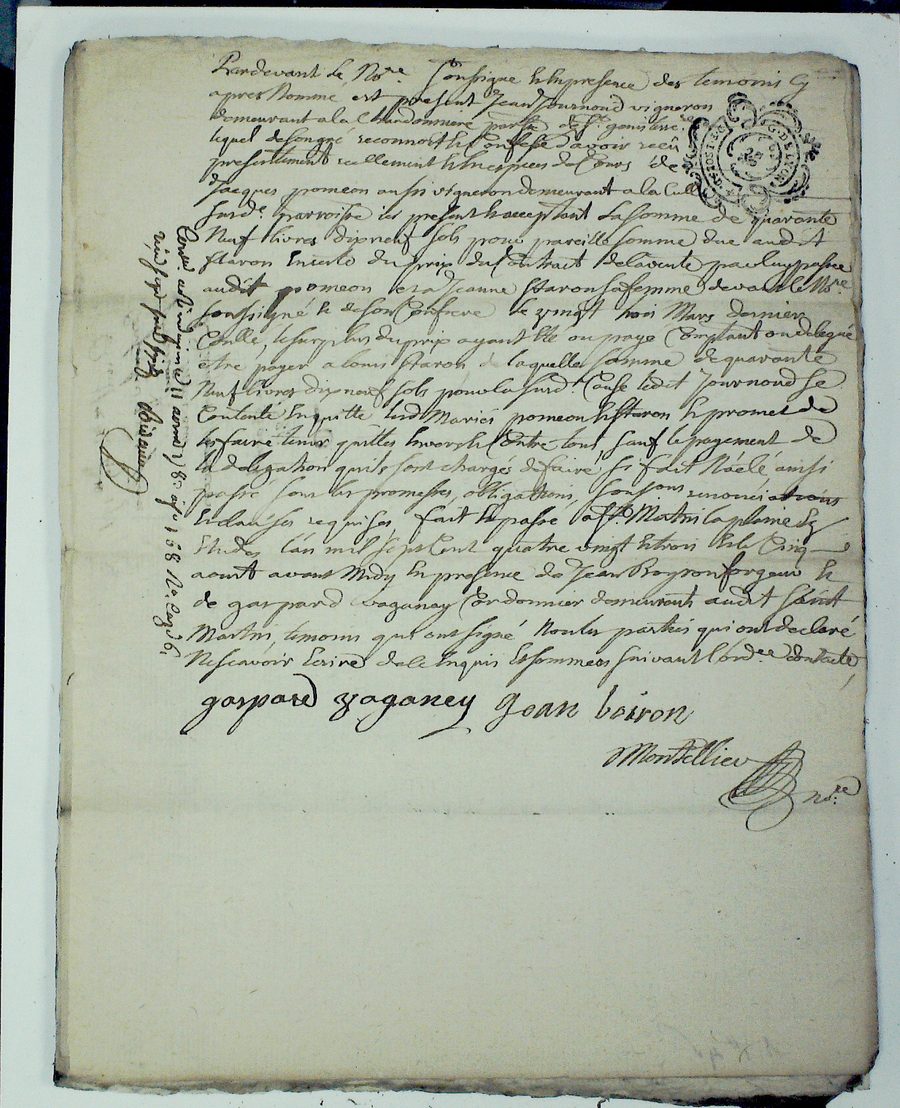 Pardevant le No.re soussigné et en presence des temoins cy
apres nommé est present Jean Journoud vigneron
demeurant a la Chardonniere parsse de St. genis terre
lequel de son gré reconnoit et confesse d'avoir recu
presentement reellement et en especes du cours de
Jacques pomeon aussi vigneron demeurant a la
surd.e parroisse icy present et acceptant la somme de quarante
neuf livres dixneuf sols pour pareille somme due aud.
staron en reste du prix du contrat de la vente par luy passee
audit pomeon et a Jeanne staron sa femme devant le No.re
soussigné et de son confrere le vingt trois Mars dernier
Conllé, le surplus du prix ayant été ou payé comptant ou delegué
etre payer a louis staron de laquelle somme de quarante
neuf livres dixneuf sols pour la susd.e cause ledit Journoud se
contente en quitte lesd. Mariés pomeon et staron et promet de
les faire tenir quittes envers et contre tous, sauf le payement de
la delegation qu'ils sont chargés de faire, si fait
passé sous les promesses, obligations, renonciations
et clauses requises, fait et passé a St. Martin la plaine Ez
Etudes l'an mil sept cent quatre vingt et trois et le cinq
aoust avant midy en presence de Jean Boyron forgeur et
de gaspard vaganay Cordonnier demeurants audit saint
Martin, temoins qui ont signé non les parties qui ont declaré
ne scavoir ecrire de ce enquis et sommées suivant l'ord.ce
gaspard vaganey Jean boiron
Montellier
No.re
G. DE LYON
11 aoust 1783